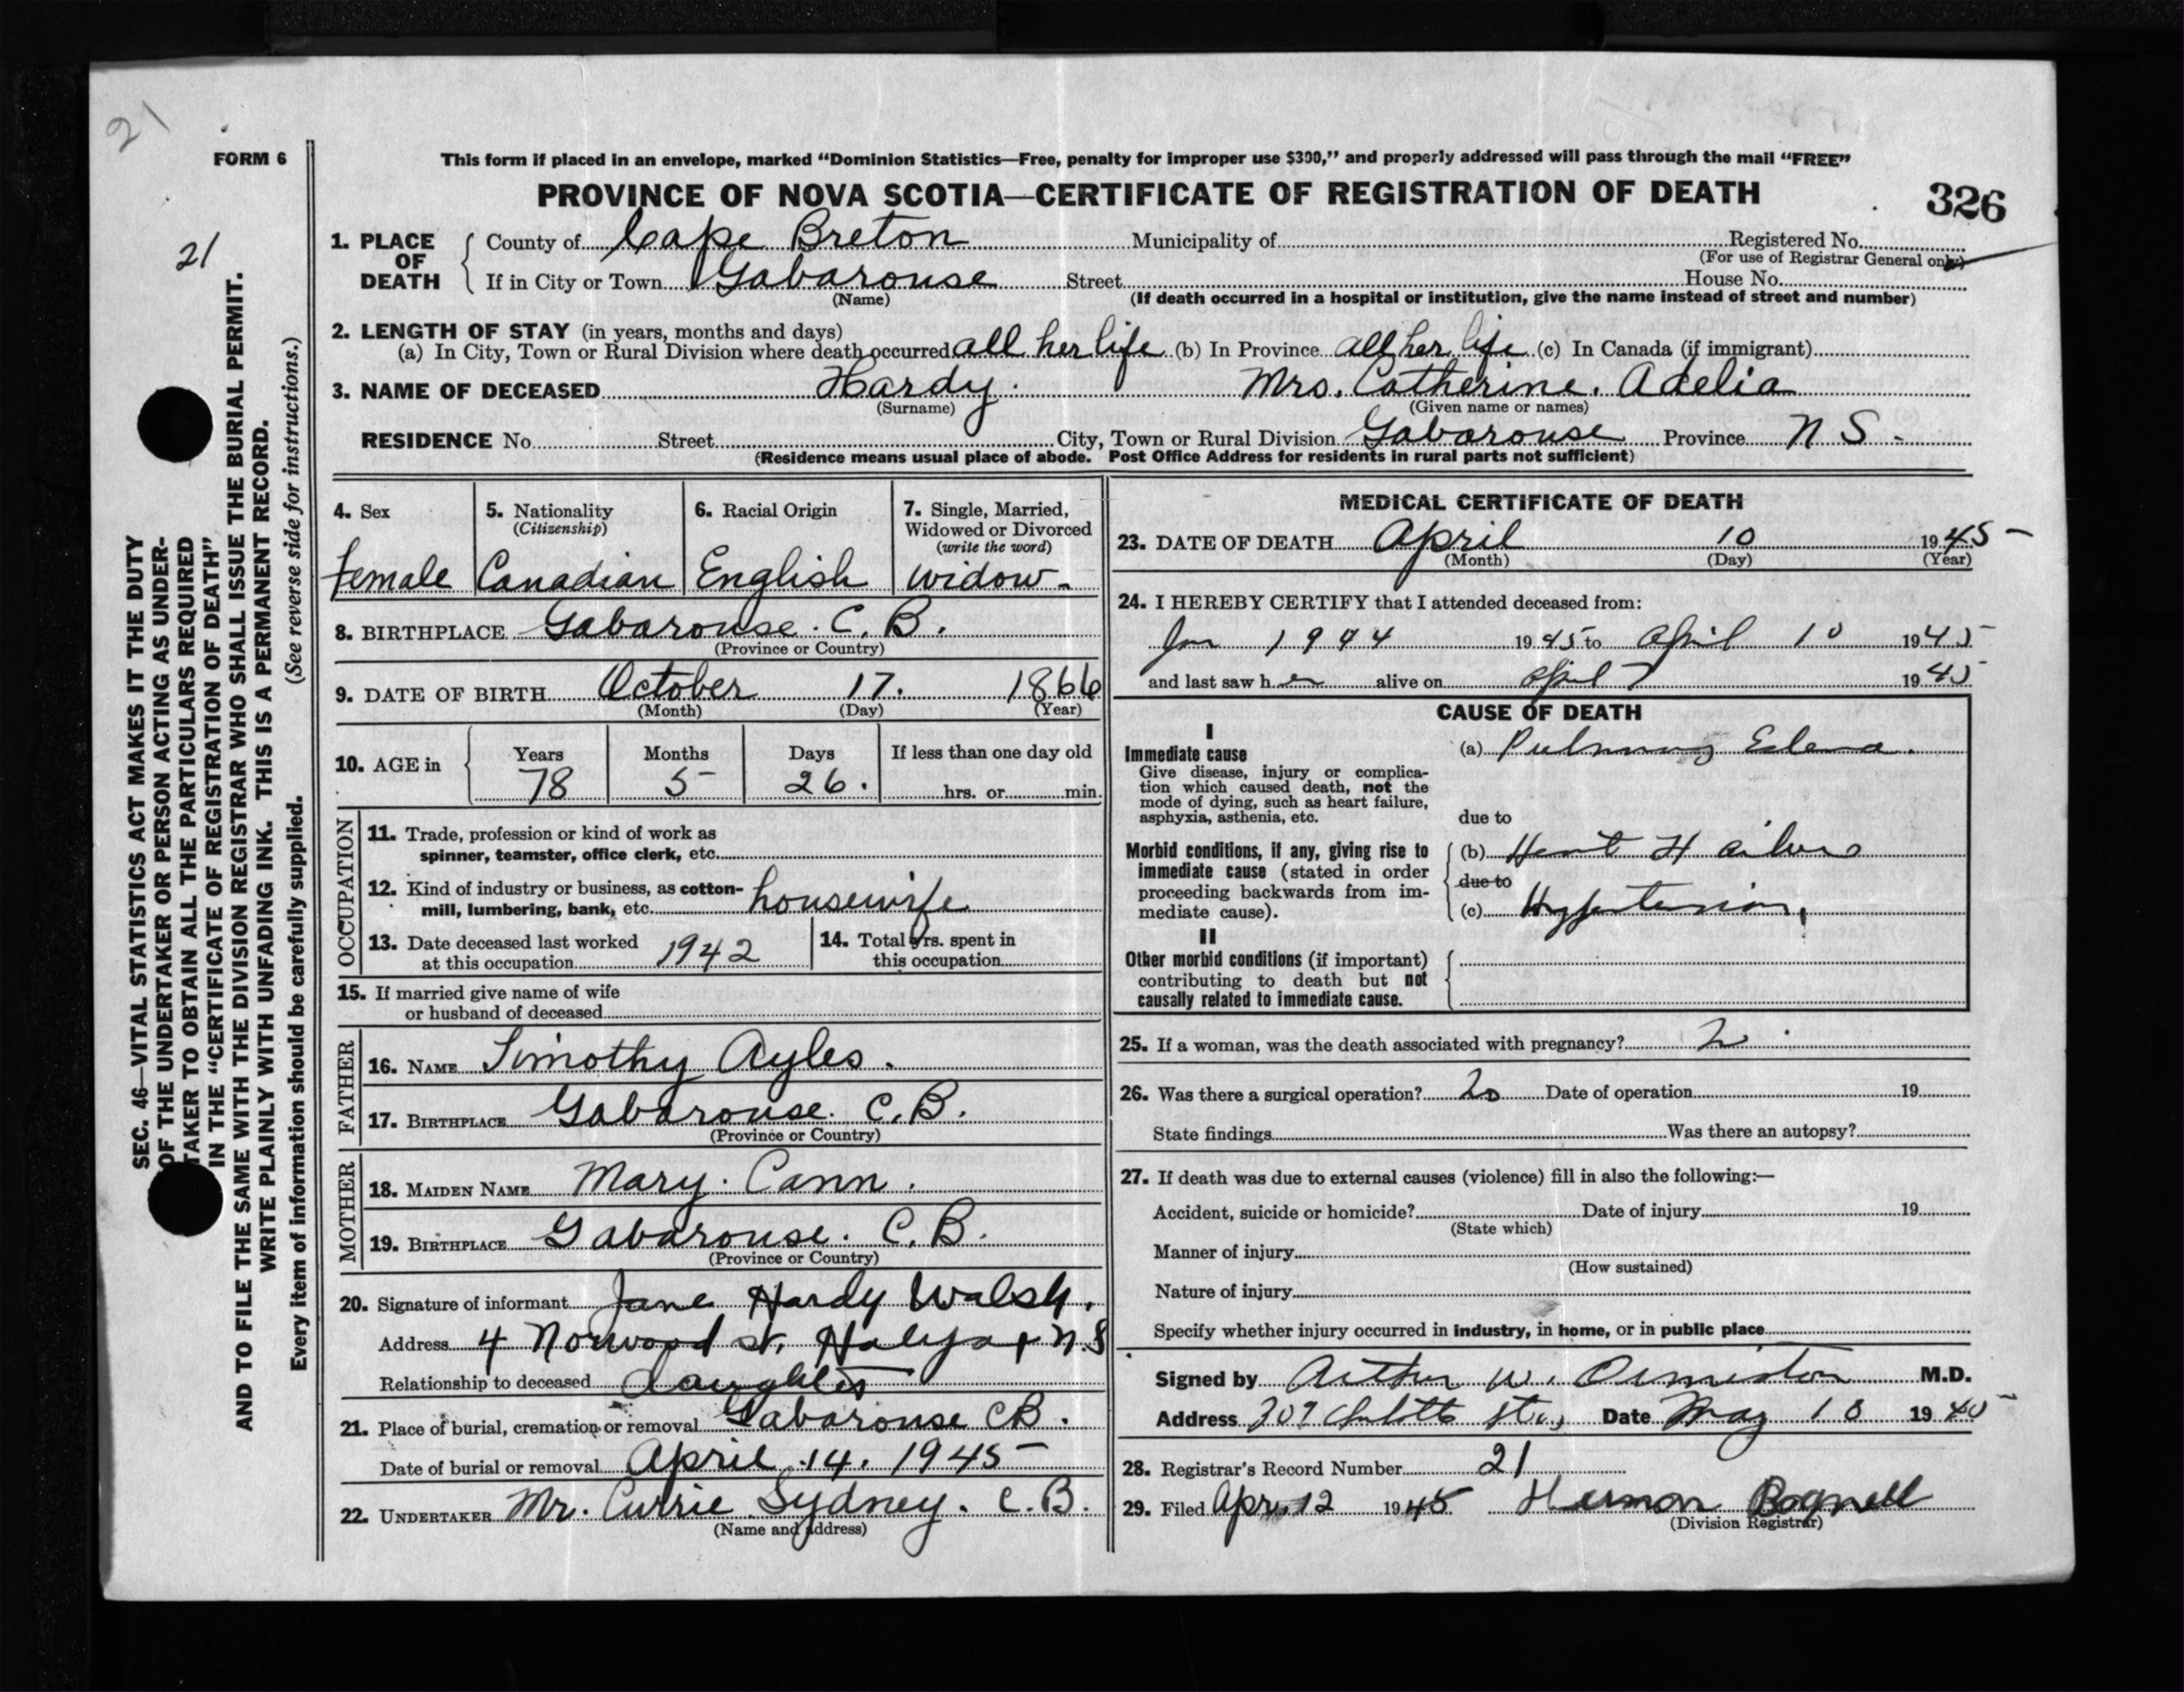 21
FORM 6
This form if placed in an envelope, marked "Dominion Statistics—Free, penalty for improper use $300," and properly addressed will pass through the mail "FREE"
PROVINCE OF NOVA SCOTIA—CERTIFICATE OF REGISTRATION OF DEATH
326
21
SEC. 46—VITAL STATISTICS ACT MAKES IT THE DUTY
OF THE UNDERTAKER OR PERSON ACTING AS UNDER-
TAKER TO OBTAIN ALL THE PARTICULARS REQUIRED
IN THE "CERTIFICATE OF REGISTRATION OF DEATH"
AND TO FILE THE SAME WITH THE DIVISION REGISTRAR WHO SHALL ISSUE THE BURIAL PERMIT.
WRITE PLAINLY WITH UNFADING INK. THIS IS A PERMANENT RECORD.
Every item of information should be carefully supplied. (See reverse side for instructions.)
1. PLACE OF DEATH
County of Cape Breton Municipality of Registered No.
(For use of Registrar General only)
If in City or Town Gabarouse Street House No.
(Name) (If death occurred in a hospital or institution, give the name instead of street and number)
2. LENGTH OF STAY (in years, months and days)
(a) In City, Town or Rural Division where death occurred all her life (b) In Province all her life (c) In Canada (if immigrant)
3. NAME OF DECEASED Hardy. Mrs. Catherine. Adelia
(Surname) (Given name or names)
RESIDENCE No. Street City, Town or Rural Division Gabarouse Province N S -
(Residence means usual place of abode. Post Office Address for residents in rural parts not sufficient)
4. Sex
female
5. Nationality
(Citizenship)
Canadian
6. Racial Origin
English
7. Single, Married,
Widowed or Divorced
(write the word)
widow-
8. BIRTHPLACE Gabarouse. C. B.
(Province or Country)
9. DATE OF BIRTH October 17. 1866
(Month) (Day) (Year)
10. AGE in
Years Months Days If less than one day old
78 5 26. hrs. or min.
OCCUPATION
11. Trade, profession or kind of work as
spinner, teamster, office clerk, etc.
12. Kind of industry or business, as cotton-
mill, lumbering, bank, etc. housewife
13. Date deceased last worked
at this occupation 1942
14. Total yrs. spent in
this occupation
15. If married give name of wife
or husband of deceased
FATHER
16. NAME Timothy Ayles.
17. BIRTHPLACE Gabarouse. C.B.
(Province or Country)
MOTHER
18. MAIDEN NAME Mary. Cann.
19. BIRTHPLACE Gabarouse. C.B.
(Province or Country)
20. Signature of informant Jane Hardy Walsh.
Address 4 Norwood St. Halifax N.S
Relationship to deceased daughter
21. Place of burial, cremation or removal Gabarouse CB.
Date of burial or removal April 14. 1945
22. UNDERTAKER Mr. Currie Sydney. C.B.
(Name and address)
MEDICAL CERTIFICATE OF DEATH
23. DATE OF DEATH April 10 1945
(Month) (Day) (Year)
24. I HEREBY CERTIFY that I attended deceased from:
Jan 1944 1945 to April 10 1945
and last saw her alive on April 7 1945
CAUSE OF DEATH
I
Immediate cause
Give disease, injury or complica-
tion which caused death, not the
mode of dying, such as heart failure,
asphyxia, asthenia, etc.
(a) Pulmonary Edema.
due to
Morbid conditions, if any, giving rise to
immediate cause (stated in order
proceeding backwards from im-
mediate cause).
(b) Heart Failure
due to
(c) Hypertension.
II
Other morbid conditions (if important)
contributing to death but not
causally related to immediate cause.
25. If a woman, was the death associated with pregnancy?
26. Was there a surgical operation? No Date of operation 19
State findings Was there an autopsy?
27. If death was due to external causes (violence) fill in also the following:—
Accident, suicide or homicide? Date of injury 19
(State which)
Manner of injury
(How sustained)
Nature of injury
Specify whether injury occurred in industry, in home, or in public place
Signed by Arthur W. Ormiston M.D.
Address Charlotte St., Date May 18 19
28. Registrar's Record Number 21
29. Filed Apr. 12 1945 Hermon Bagnell
(Division Registrar)